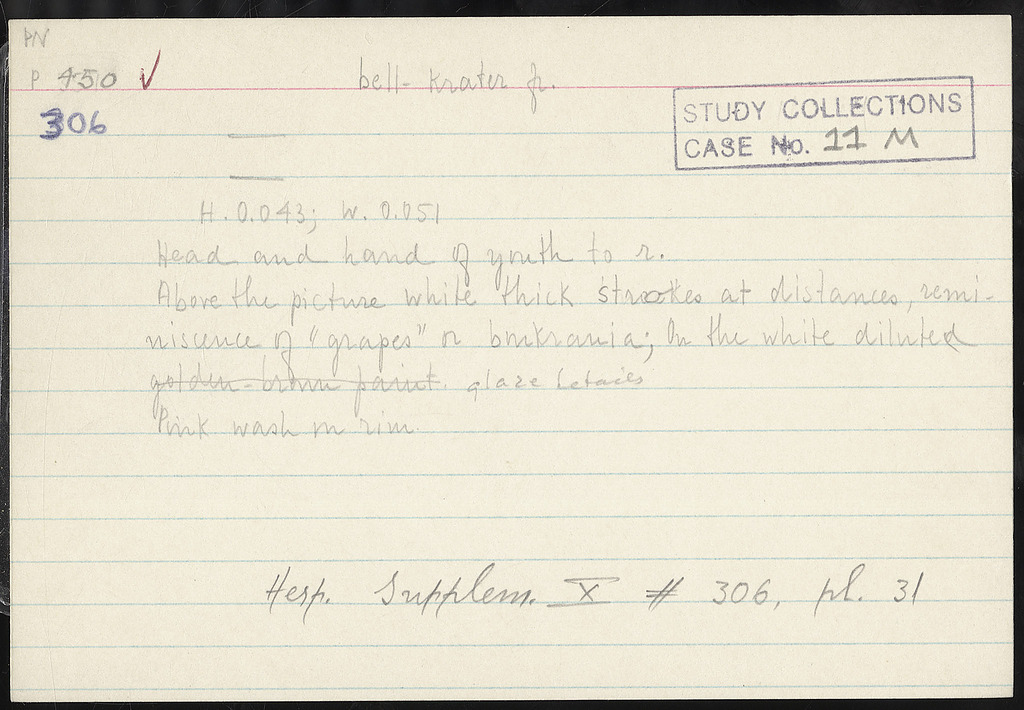 PN
P 450 ✓
bell-krater fr.
306
STUDY COLLECTIONS
CASE No. 11 M
H. 0.043; W. 0.051
Head and hand of youth to r.
Above the picture white thick strokes at distances, remi-
niscence of "grapes" or bukrania; On the white diluted
golden-brown paint. glaze details
Pink wash on rim.
Hesp. Supplem. X # 306, pl. 31